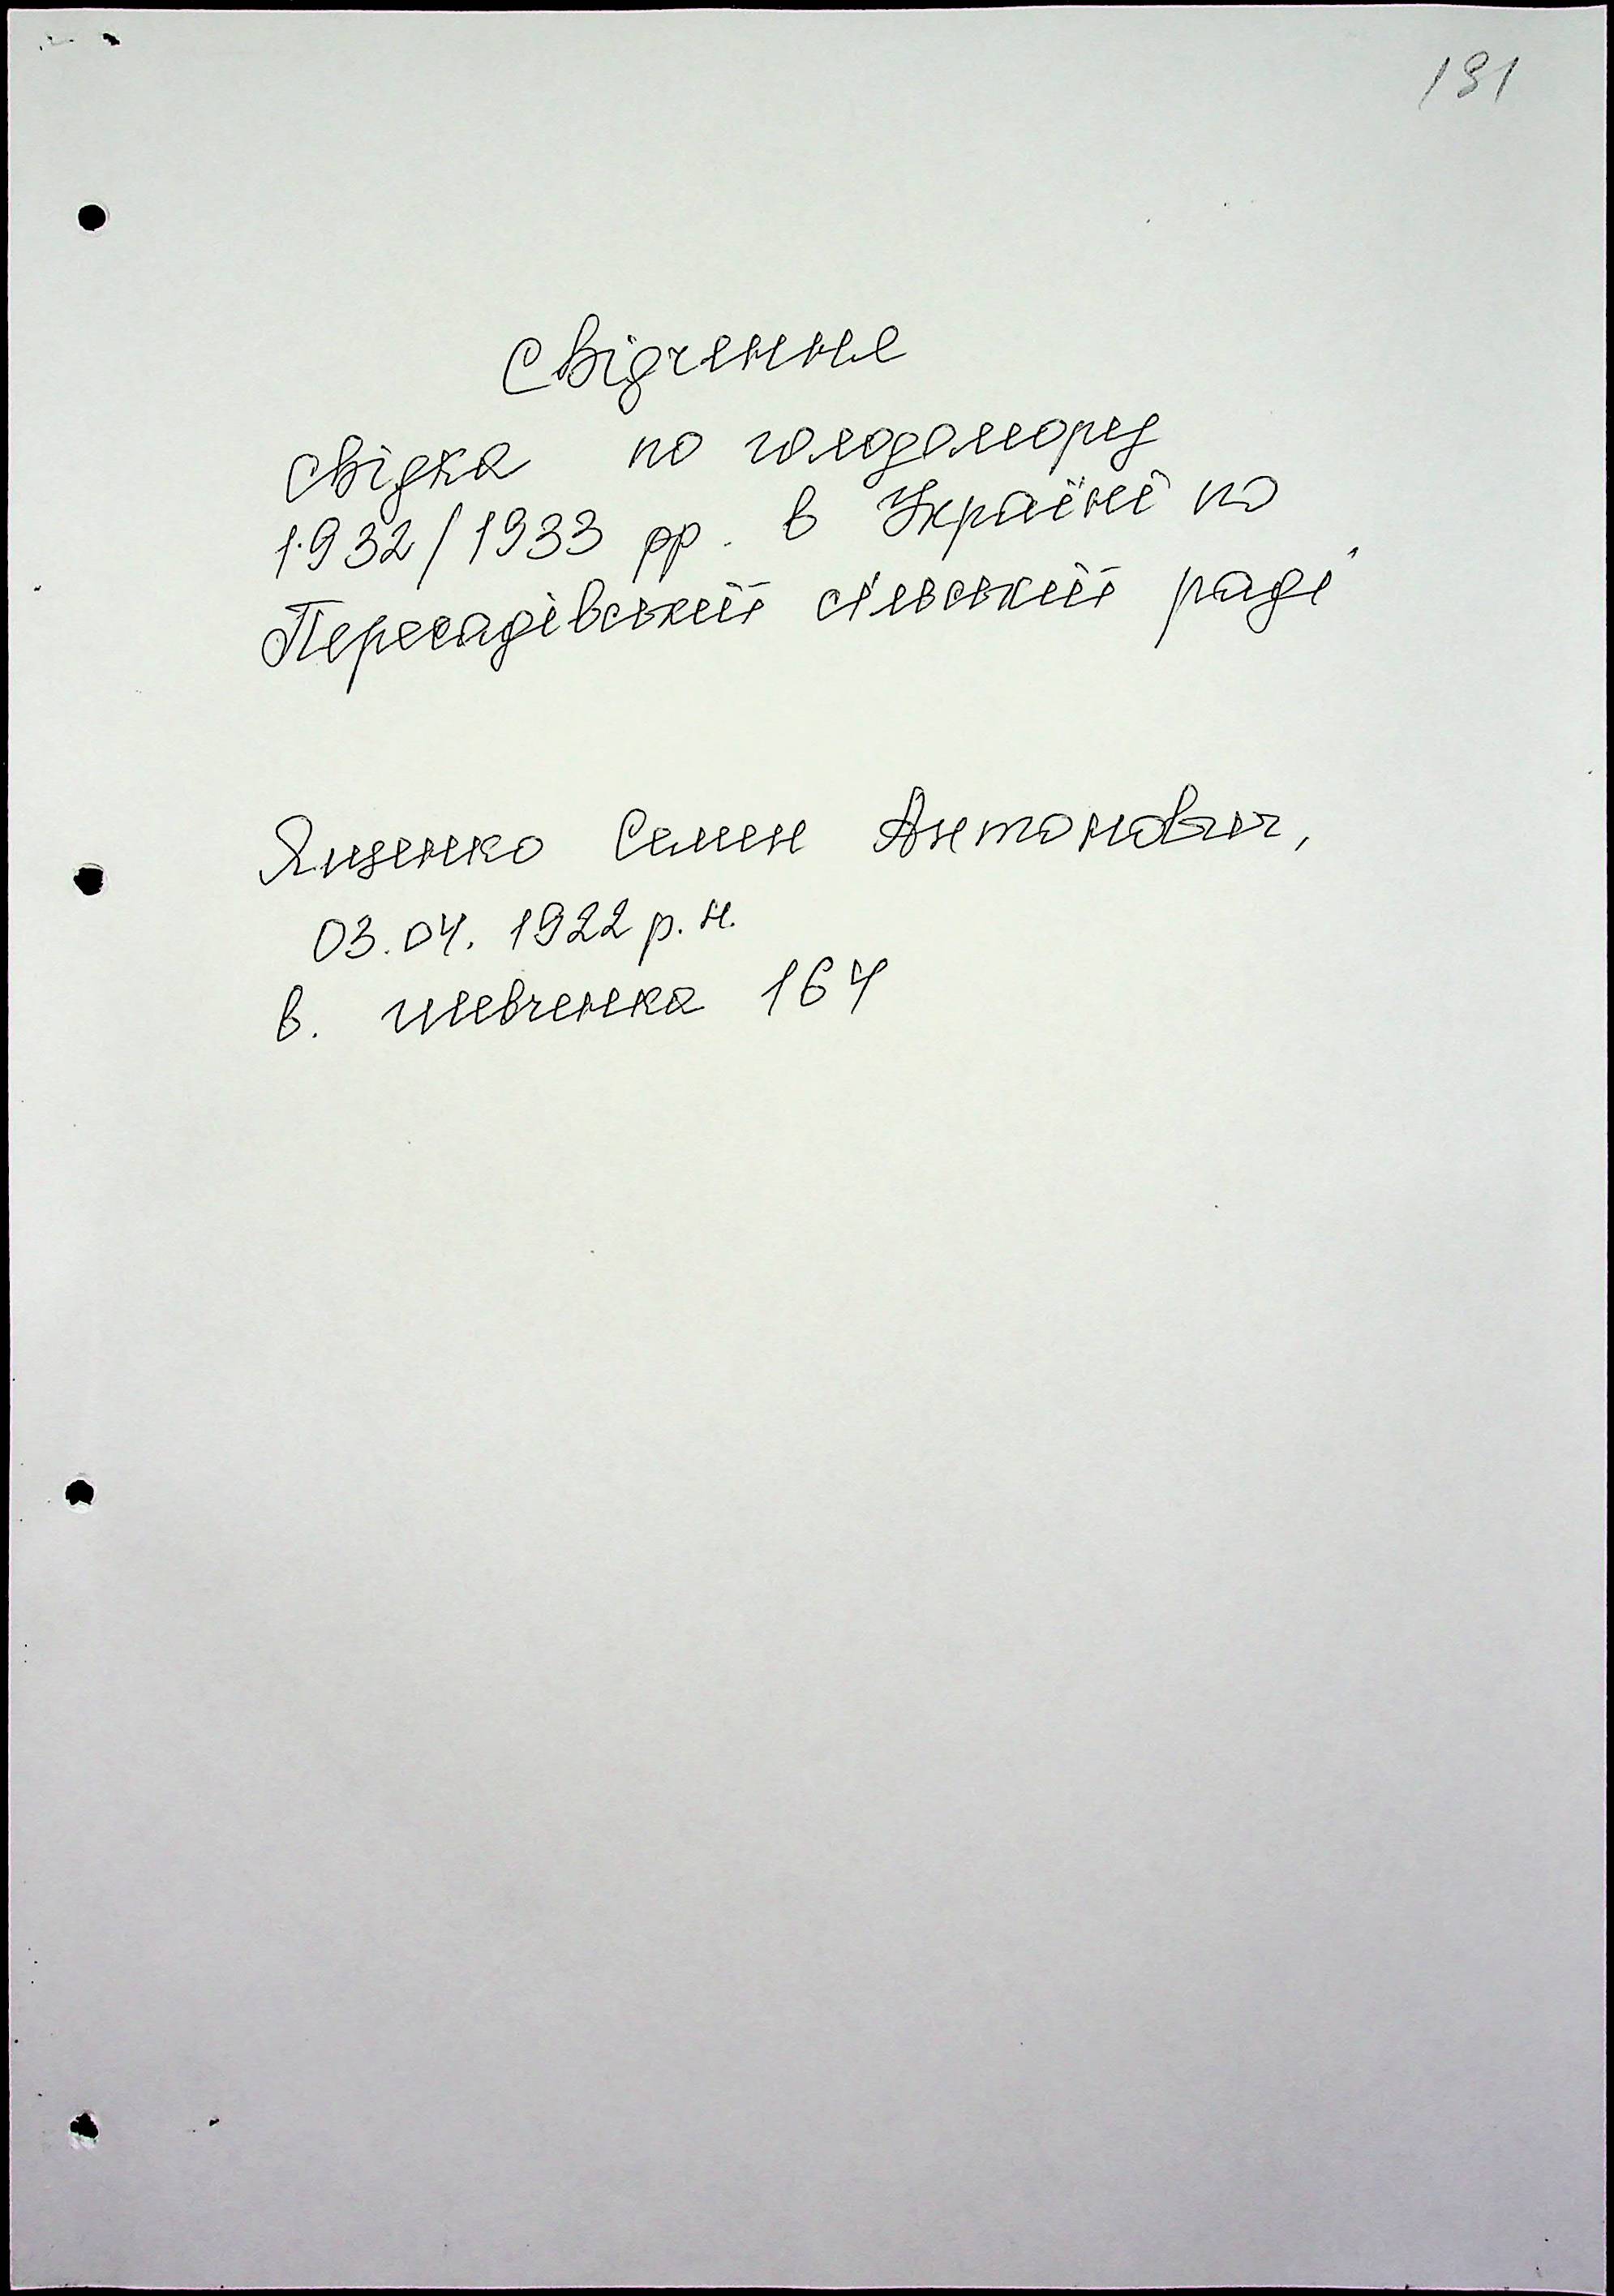 191
Свідчення
свідка по голодомору
1932/1933 рр. в Україні по
Пересадівській сільській раді
Яценко Семен Антонович,
03.04.1922 р.н.
в. Шевченка 164